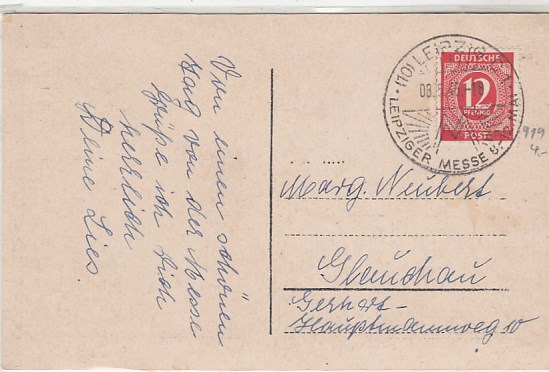 Von einen schönen
Tag von der Messe
Grüße ich Dich
herrlich
Deine Lies.
(10) LEIPZIG
08.5.
LEIPZIGER MESSE 8.
DEUTSCHE
12
PFENNIG
POST
919
4.-
Marg. Neubert
Glauchau
Gerhart-
Hauptmannweg 10